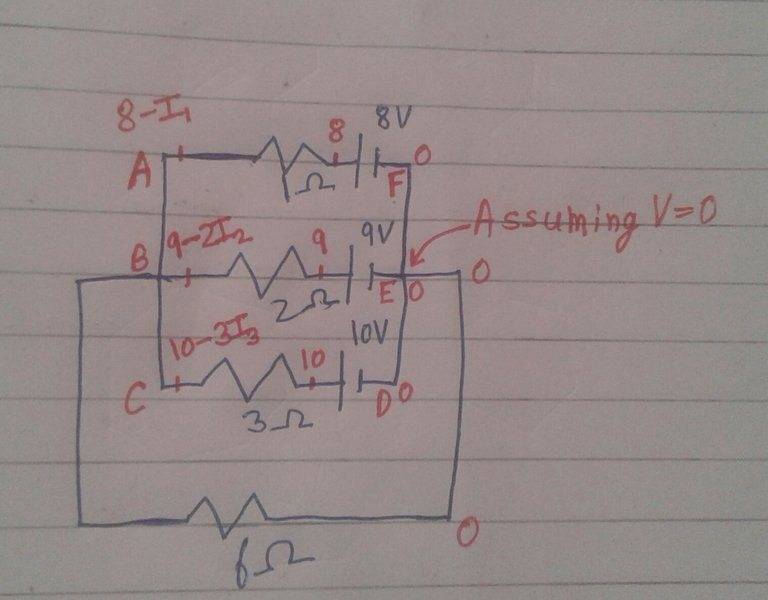 8-I₁ 8 8V
A 1Ω F 0
Assuming V=0
B 9-2I₂ 9 9V 0
2Ω E 0
10-3I₃ 10 10V
C 3Ω D 0
6Ω 0